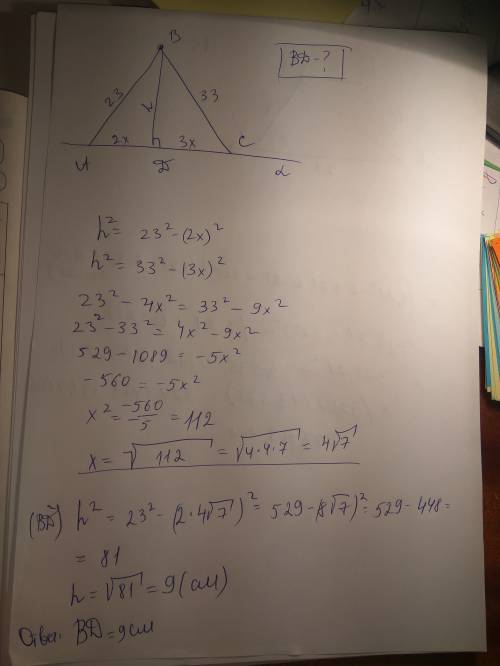 B
BD - ?
23
h
33
2x
3x
C
A
D
α
h² = 23² - (2x)²
h² = 33² - (3x)²
23² - 4x² = 33² - 9x²
23² - 33² = 4x² - 9x²
529 - 1089 = -5x²
-560 = -5x²
x² = -560/5 = 112
x = √112 = √4·4·7 = 4√7
(BD) h² = 23² - (2·4√7)² = 529 - (8√7)² = 529 - 448 =
= 81
h = √81 = 9 (см)
Ответ: BD = 9см